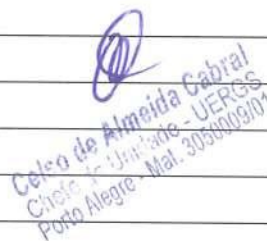 Celso de Almeida Cabral
Chefe de Unidade - UERGS
Porto Alegre - Mat. 3050009/01